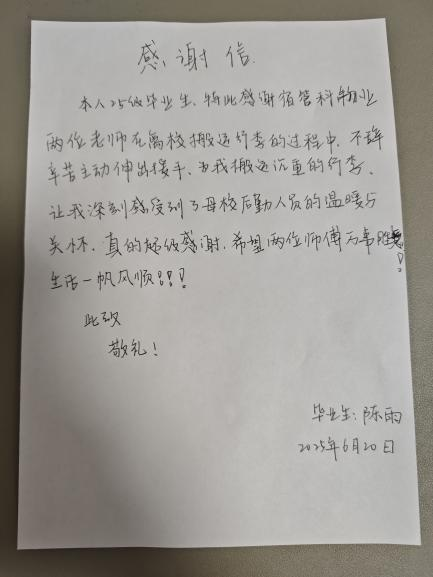 感谢信
本人25级毕业生,特此感谢宿管科物业
两位老师在离校搬运行李的过程中,不辞
辛苦主动伸出援手,为我搬运沉重的行李,
让我深刻感受到了母校后勤人员的温暖与
关怀,真的好级感谢,希望两位师傅万事顺!
生活一帆风顺!!!
此致
敬礼!
毕业生:陈雨
2025年6月20日